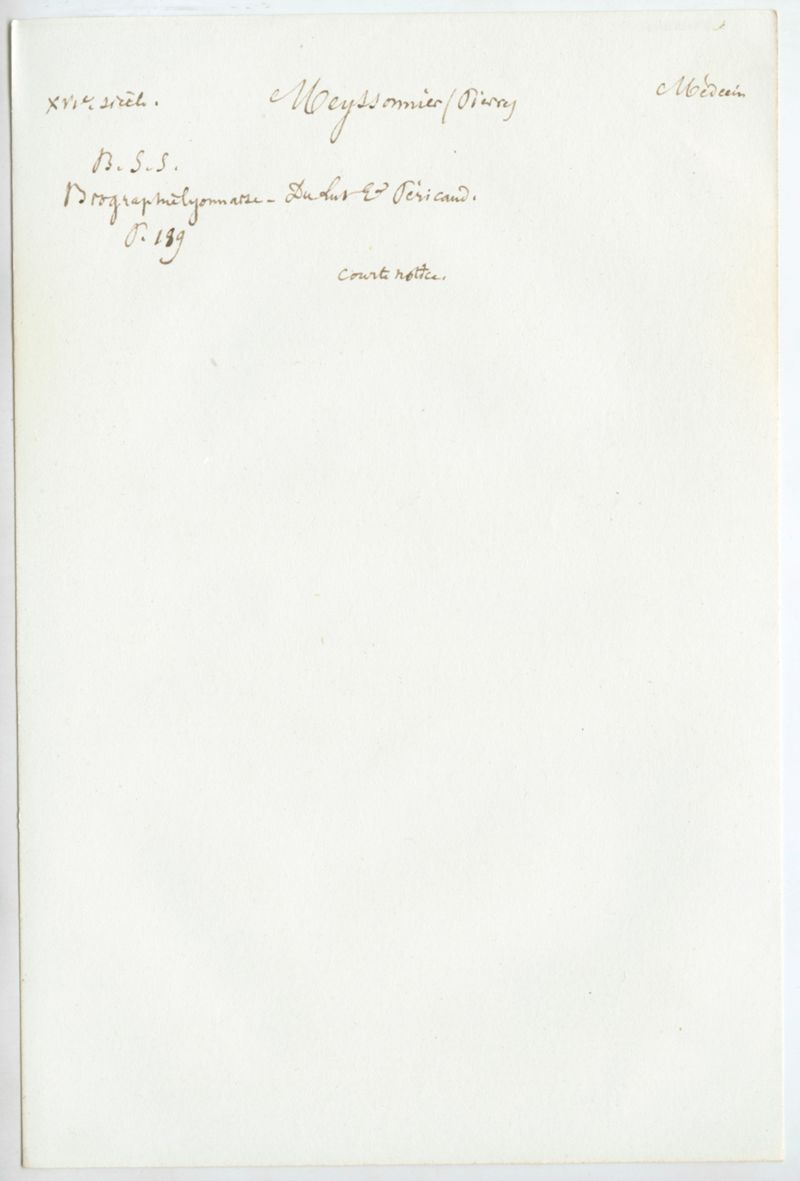 XVIe. siècle. Meyssonnier (Pierre) Médecin
B. S. S.
Biographie lyonnaise - Du Lut & Péricaud.
P. 189
courte notice.